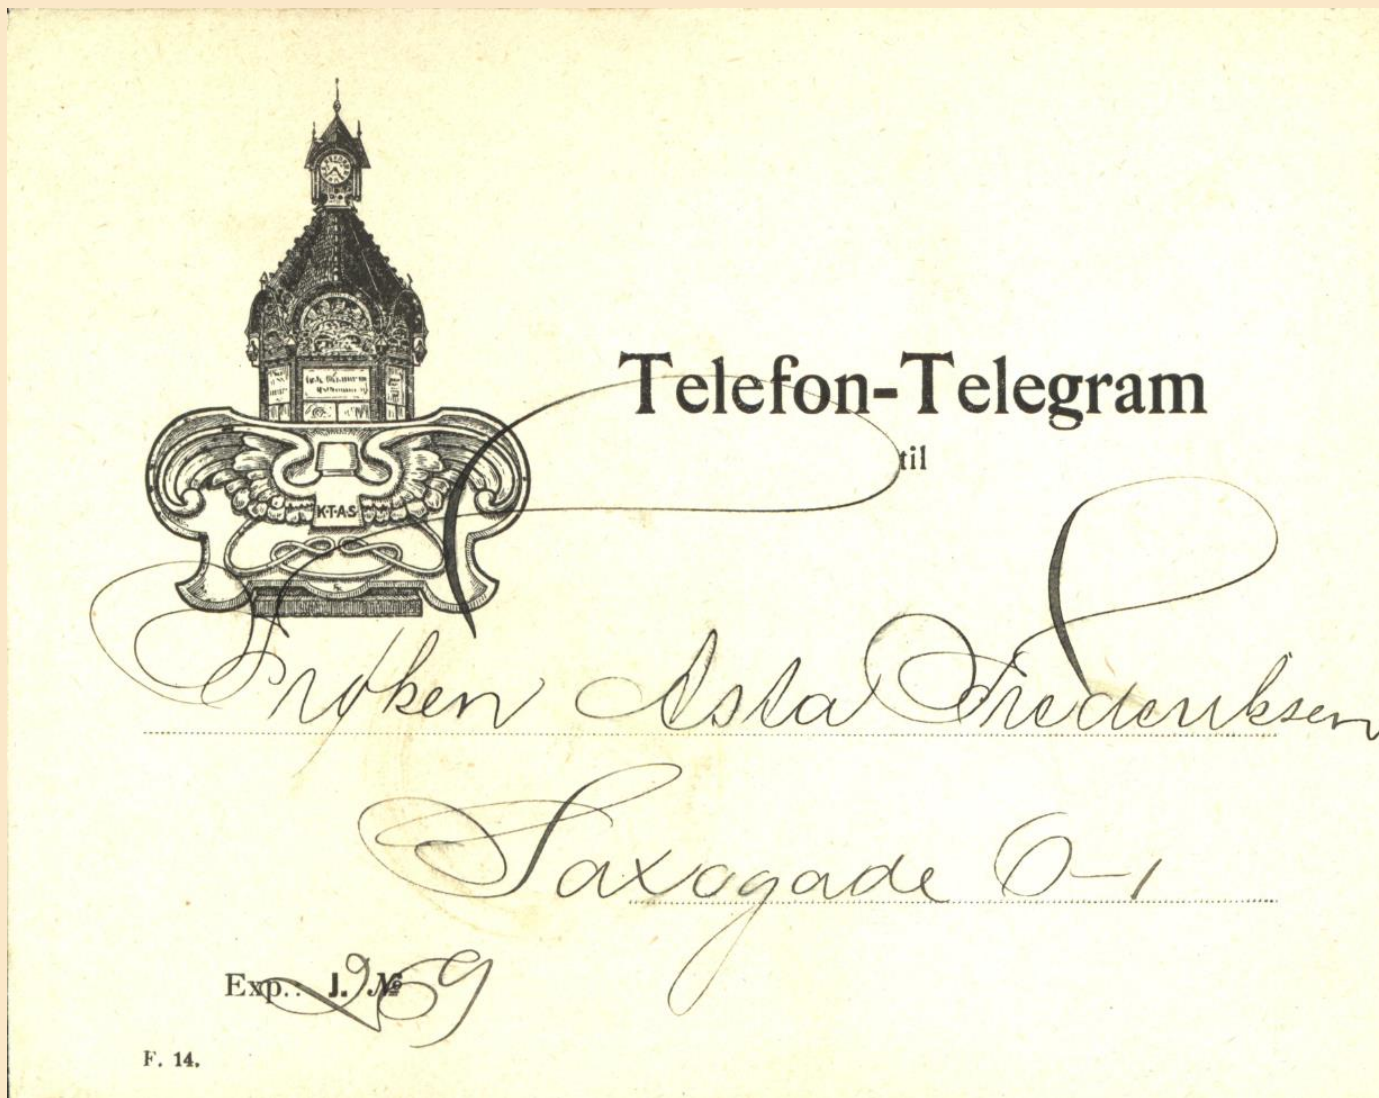 K·T·A·S
Telefon-Telegram
til
Frøken Asta Frederiksen
Saxogade 6-1
Exp.: J. № 269
F. 14.